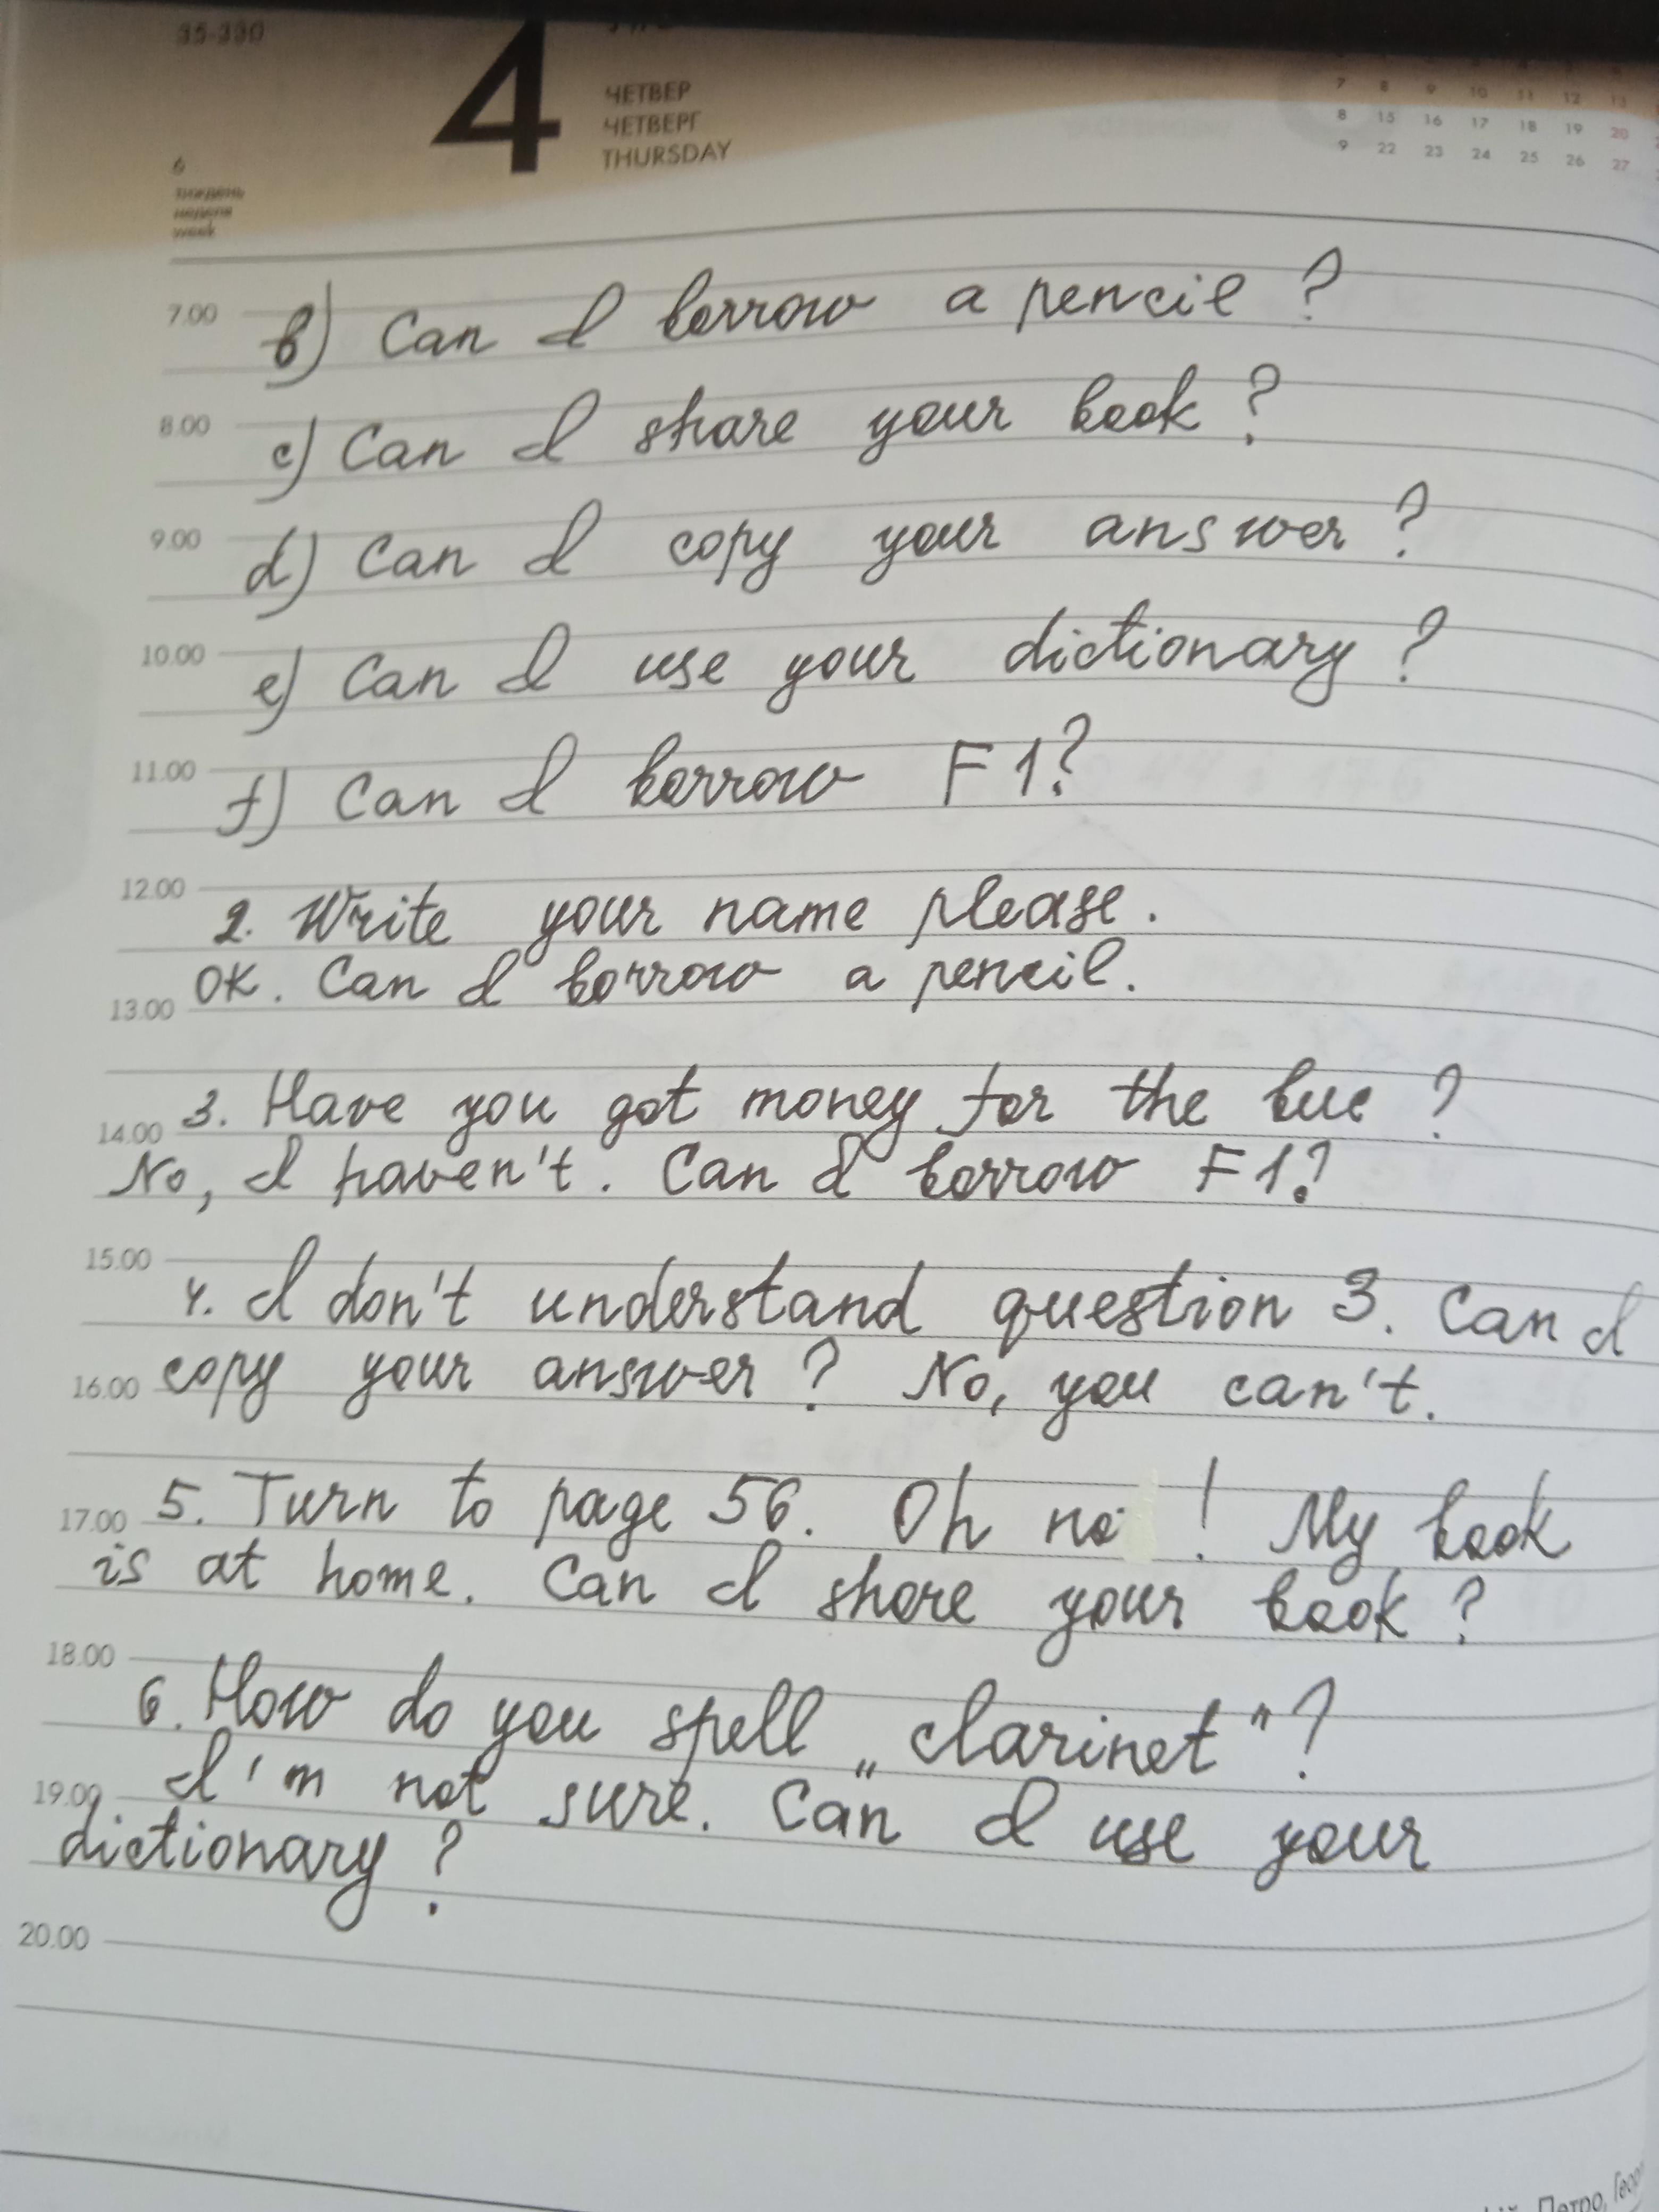 35-330
4
ЧЕТВЕР
ЧЕТВЕРГ
THURSDAY
6
тиждень
неделя
week
7 8 9 10 11 12 13
8 15 16 17 18 19 20
9 22 23 24 25 26 27
7.00 b) Can I borrow a pencil?
8.00 c) Can I share your book?
9.00 d) Can I copy your answer?
10.00 e) Can I use your dictionary?
11.00 f) Can I borrow F1?
12.00 2. Write your name please.
OK. Can I borrow a pencil.
13.00
3. Have you got money for the buc?
14.00
No, I haven't. Can I borrow F1?
15.00
4. I don't understand question 3. Can I
16.00 copy your answer? No, you can't.
17.00 5. Turn to page 56. Oh no! My book
is at home. Can I share your book?
18.00
6. How do you spell „clarinet"?
19.00 I'm not sure. Can I use your
dictionary?
20.00
Петро,